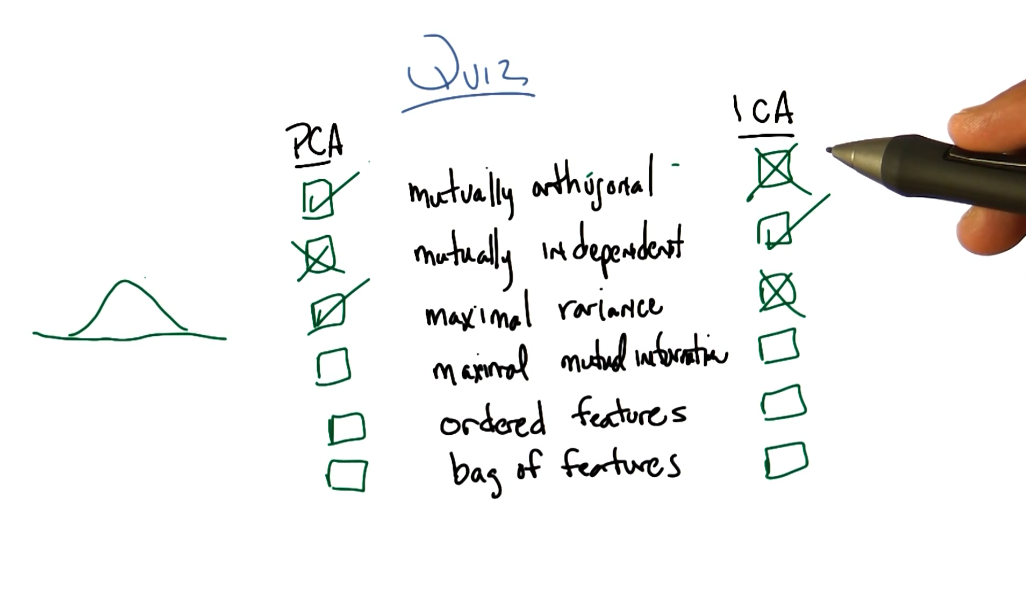 Quiz
PCA ICA
mutually orthogonal
mutually independent
maximal variance
maximal mutual information
ordered features
bag of features